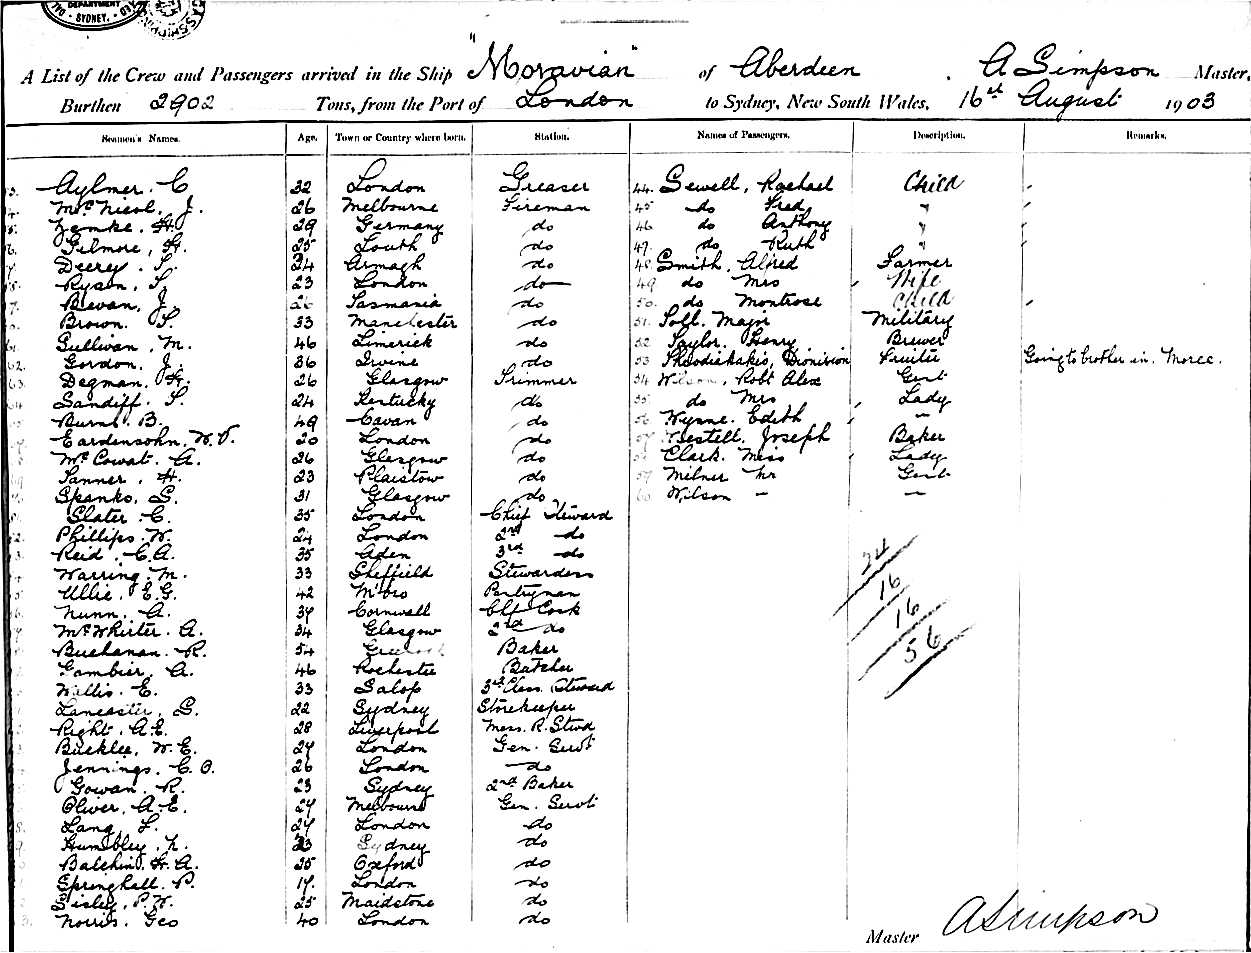 DEPARTMENT
SYDNEY.
A List of the Crew and Passengers arrived in the Ship "Moravian" of Aberdeen, A Simpson Master,
Burthen 2902 Tons, from the Port of London to Sydney, New South Wales, 16th August 1903
Seamen's Names. Age. Town or Country where born. Station. Names of Passengers. Description. Remarks.
Aylmer. C 32 London Greaser 44. Sewell, Rachael Child
McNicol, J. 26 Melbourne Fireman 45 do Fred "
Zemke. H. 29 Germany do 46 do Anthony "
Gilmore, H. 25 Louth do 47. do Ruth "
Deery. S. 24 Armagh do 48. Smith, Alfred Farmer
Ryson, S. 23 London do 49 do Mrs Wife
Bevan, J. 26 Tasmania do 50. do Montrose Child
Brown. S. 33 Manchester do 51. Major Military
Sullivan, M. 46 Limerick do 52 Taylor. Henry Brewer
Gordon, J. 36 Irvine do 53 Dionision Fruiter Going to brother in.
Degman, H. 26 Glasgow Trimmer 54 Wilson, Robt Alex Gent
Sandiff. S. 24 Kentucky do 55 do Mrs Lady
Burns. B. 49 Cavan do 56 Wynne. Edith —
Eardensohn. W. V. 20 London do 57 Joseph Baker
McCowat. A. 26 Glasgow do Clark. Miss Lady
Tanner. H. 23 Plaistow do Milner Mr Gent
Spanks, S. 31 Glasgow do 60 Wilson — —
Slater. C. 35 London Chief Steward
Phillips. W. 24 London 2nd do
Reid. C. A. 35 Aden 3rd do
Warring. M. 33 Sheffield Stewardess
Ullie. E. G. 42 Pantryman
Nunn. A. 34 Cornwall Chf Cook
McWhirter. A. 34 Glasgow 2nd do
Buchanan. R. 54 Greenock Baker
Gambier. A. 46 Rochester Butcher
Willis. E. 33 Salop 3rd Class. Steward
Lancaster, S. 22 Sydney Storekeeper
Right. A. E. 28 Liverpool Mess. R. Stwd
Bucklee, W. E. 24 London Gen. Servt
Jennings. C. O. 26 London do
Gowan. R. 23 Sydney 2nd Baker
Oliver. A. E. 24 Melbourne Gen. Servt
Lang. L. 24 London do
Humbley. N. 23 Sydney do
Balchin. H. A. 25 Oxford do
Springhall. P. 17. London do
Sisley. P. W. 25 Maidstone do
Norris. Geo 40 London do
24
16
16
56
Master A Simpson